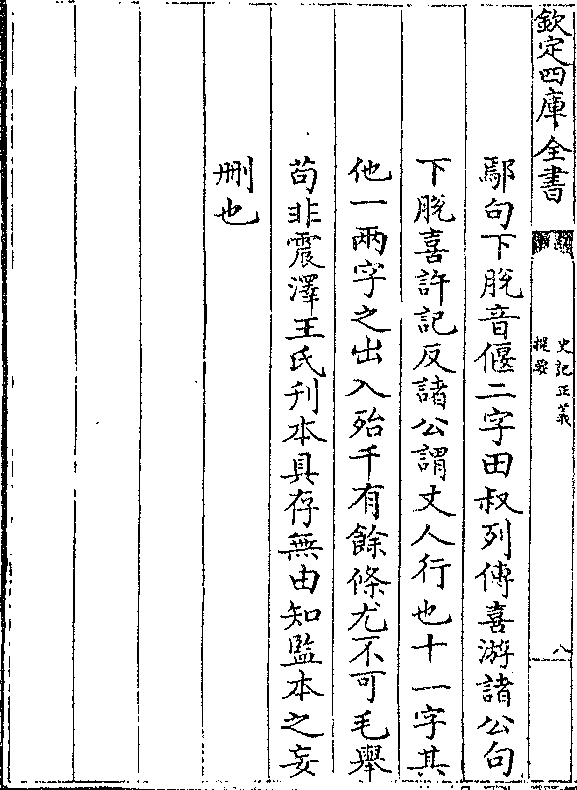 欽定四庫全書
史記正義
提要
八
鄢句下脫音偃二字田叔列傳喜游諸公句
下脫喜許記反諸公謂丈人行也十一字其
他一兩字之出入殆千有餘條尤不可毛舉
茍非震澤王氏刊本具存無由知監本之妄
刪也